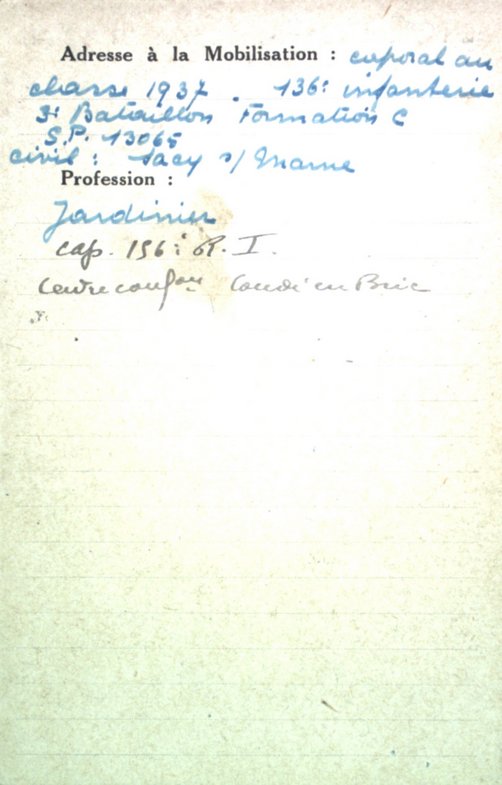 Adresse à la Mobilisation : caporal au
classe 1937. 136e infanterie
3e Bataillon Formation C
S.P. 13065
civil : Sacy s/ Marne
Profession :
Jardinier
cap. 156e R. I.
Condé en Brie